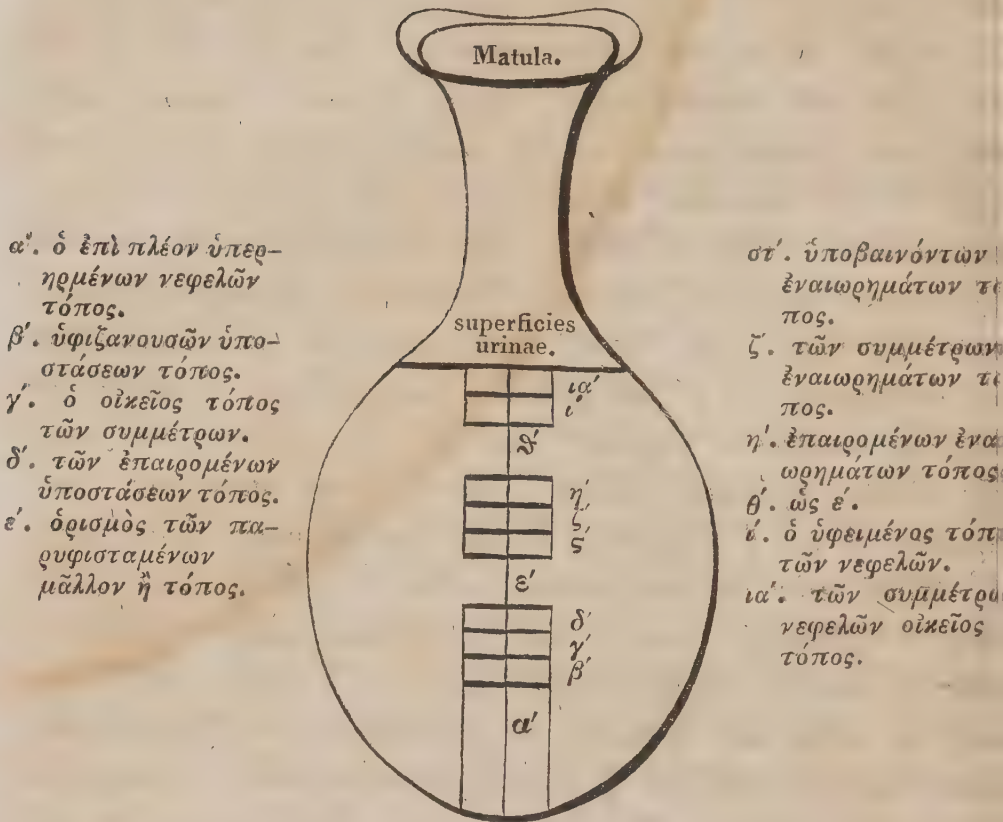 Matula.
α'. ὁ ἐπὶ πλέον ὑπερ-
ηρμένων νεφελῶν
τόπος.
β'. ὑφιζανουσῶν ὑπο-
στάσεων τόπος.
γ'. ὁ οἰκεῖος τόπος
τῶν συμμέτρων.
δ'. τῶν ἐπαιρομένων
ὑποστάσεων τόπος.
ε'. ὁρισμὸς τῶν πα-
ρυφισταμένων
μᾶλλον ἢ τόπος.
superficies
urinae.
ια'
ι'
θ'
η'
ζ'
ς'
ε'
δ'
γ'
β'
α'
στ'. ὑποβαινόντων
ἐναιωρημάτων
πος.
ζ'. τῶν συμμέτρων
ἐναιωρημάτων
πος.
η'. ἐπαιρομένων
ωρημάτων τόπος
θ'. ὡς ε'.
ί. ὁ ὑφειμένος
τῶν νεφελῶν.
ια'. τῶν
νεφελῶν οἰκεῖος
τόπος.